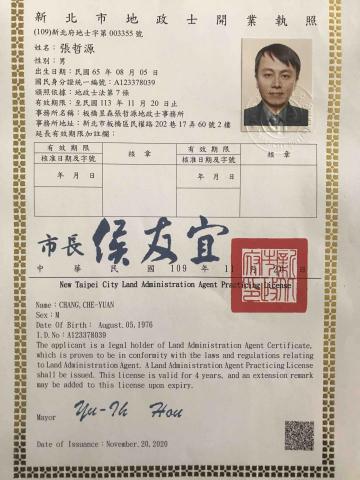 新北市地政士開業執照
(109)新北府地士字第003355號
姓名：張哲源
性別：男
出生日期：民國 65 年 08 月 05 日
國民身分證統一編號：A123378039
頒照依據：地政士法第7條
有效期限：至民國 113 年 11 月 20 日止
事務所名稱：板橋里森張哲源地政士事務所
事務所地址：新北市板橋區民權路 202 巷 17 弄 60 號 2 樓
延長有效期限加註欄：
有效期限
核准日期及字號
核章
有效期限
核准日期及字號
核章
年 月 日
年 月 日
市長 侯友宜
中華民國 109 年 11 月 20 日
New Taipei City Land Administration Agent Practicing License
Name：CHANG,CHE-YUAN
Sex：M
Date Of Birth： August.05,1976
I.D.No：A123378039
The applicant is a legal holder of Land Administration Agent Certificate,
which is proved to be in conformity with the laws and regulations relating
to Land Administration Agent. A Land Administration Agent Practicing License
shall be issued. This license is valid for 4 years, and an extension remark
may be added to this license upon expiry.
Mayor Yu-Ih Hou
Date of Issuance：November.20,2020